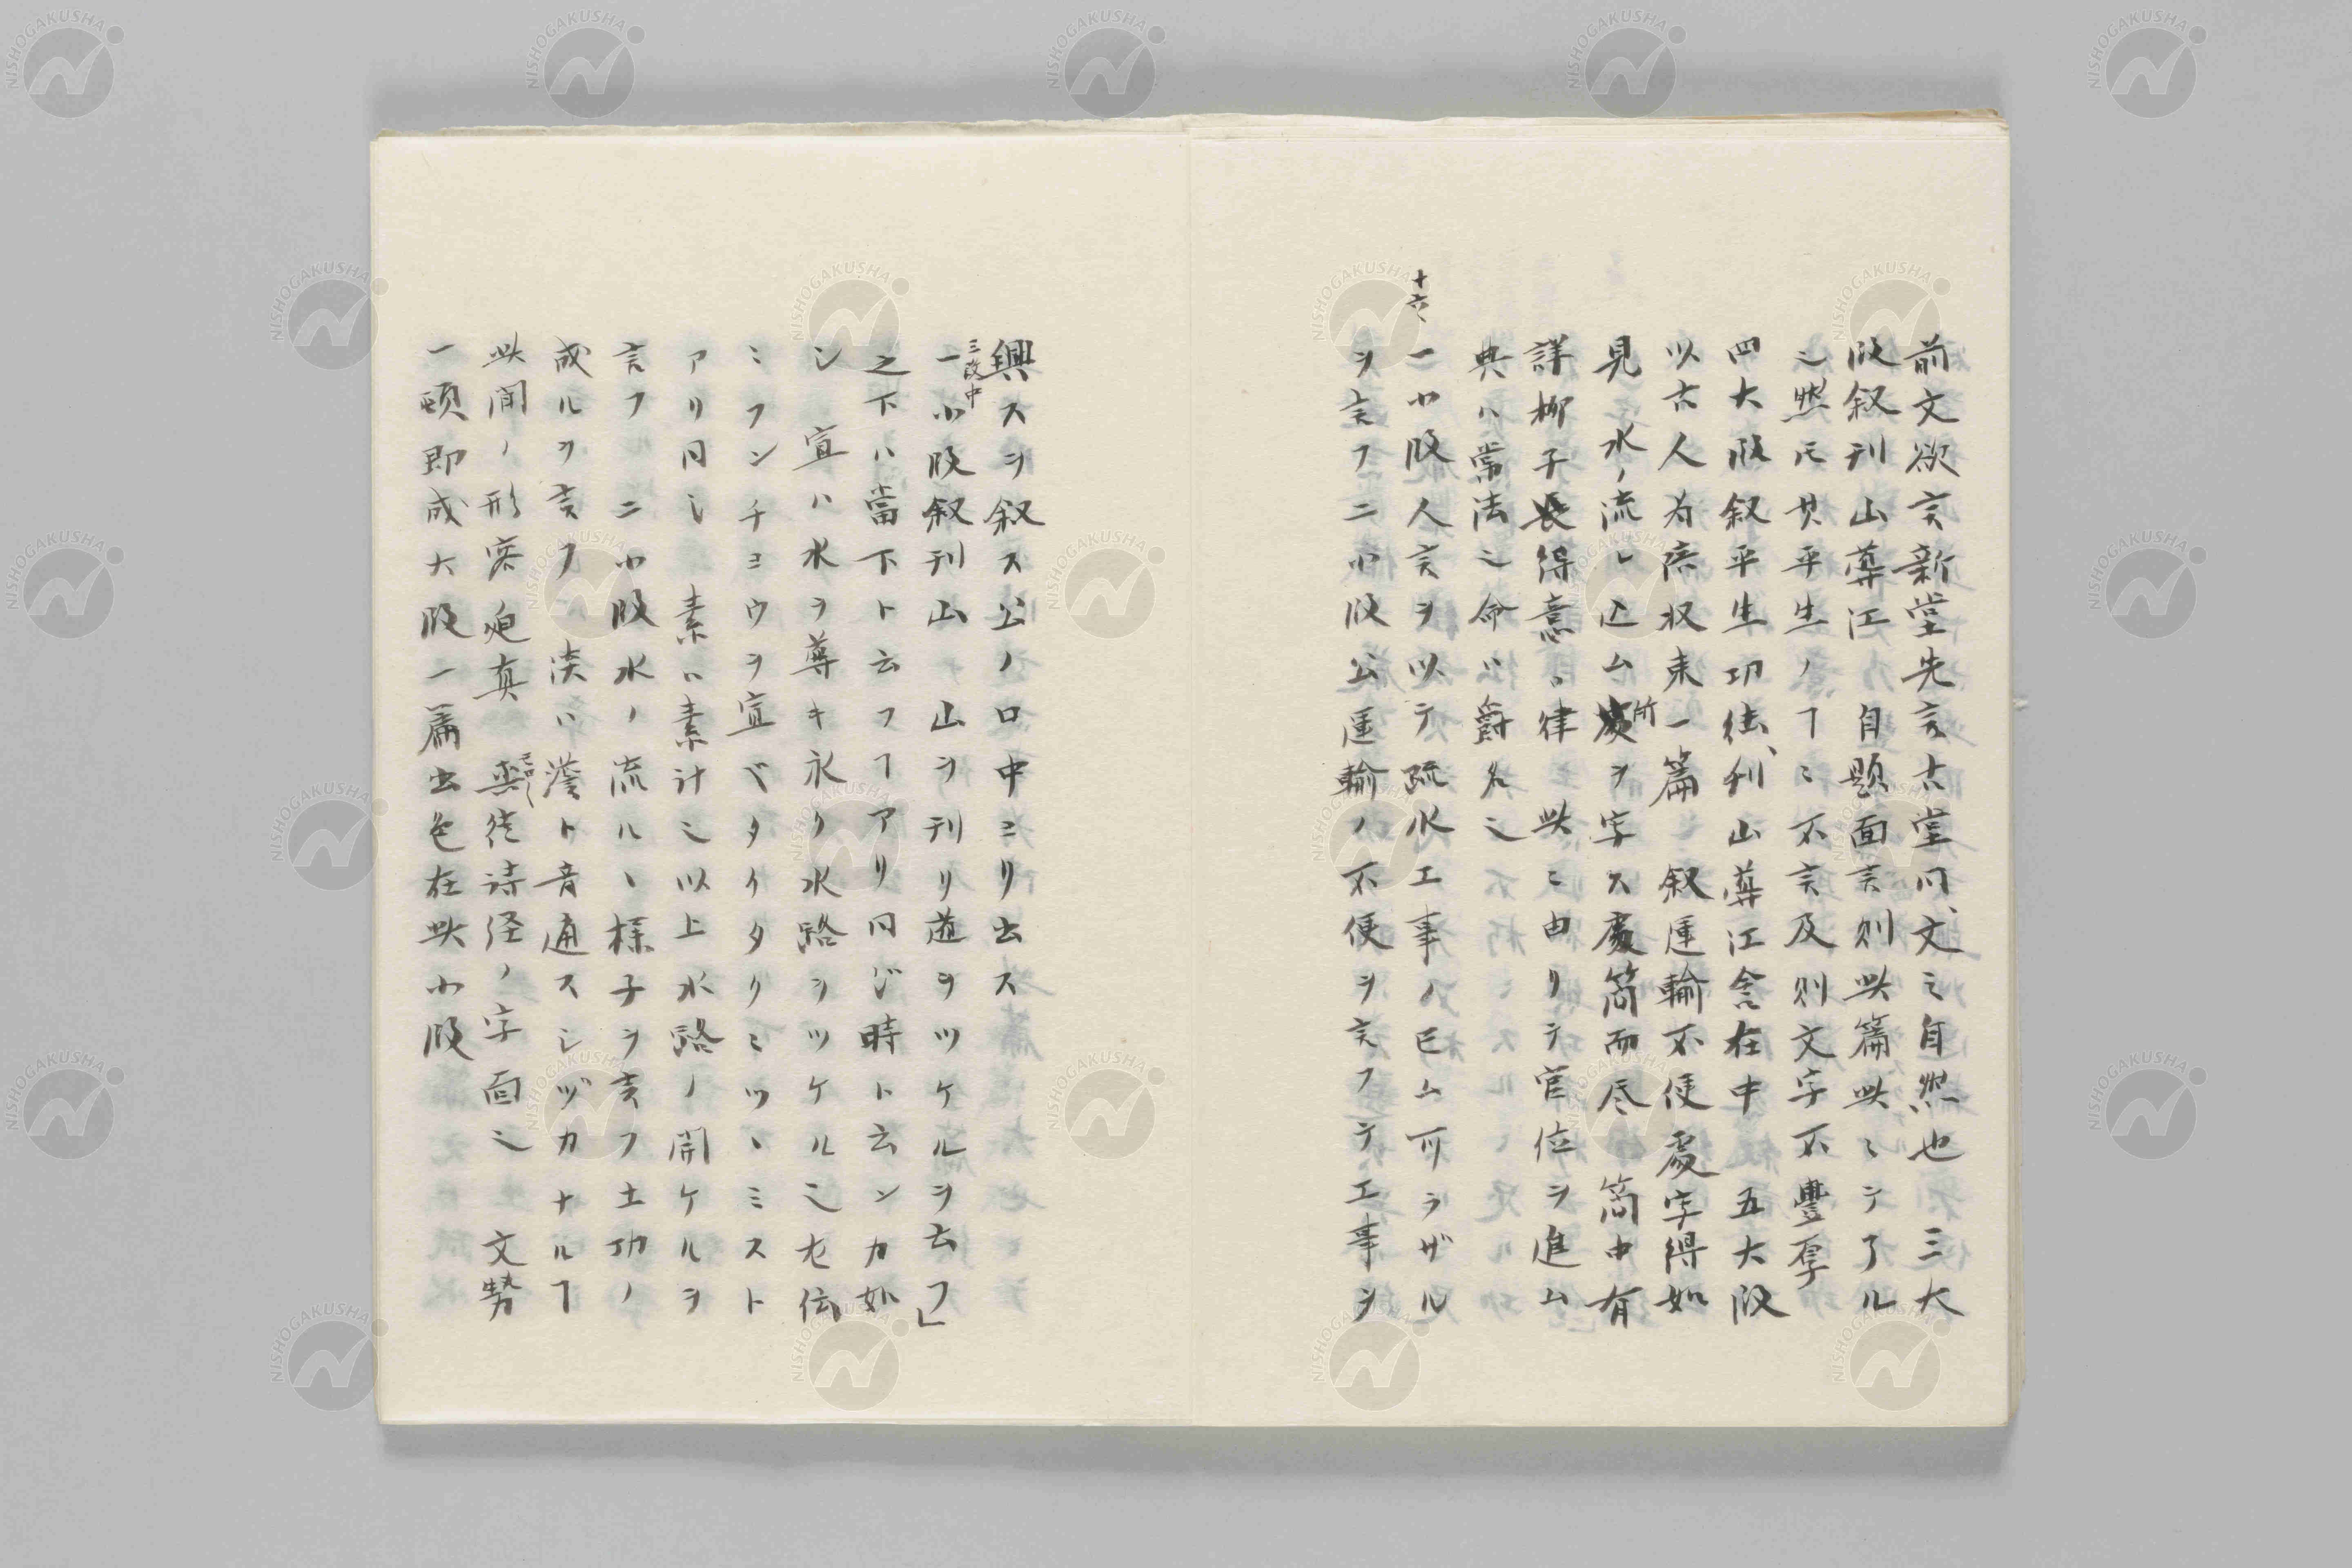 前文欲言新堂先言古堂同、文之自然也　三大
段叙刊山導江　自題面言則此篇此ニシテ了ル
也然𪜈其平生ノヿニ不言及則文字不豊厚
四大段叙平生功徳、刊山導江含在中　五大段
以古人為陪収束一篇　叙運輸不便處字得如
見　水ノ流レ込ム處所ヲ字ス處簡而尽　簡中有
詳柳子長得意、律　此ニ由リテ官位ヲ進ム
典ハ常法也命ハ爵名也
十六、
一小段人言ヲ以テ疏水工事ノ已ム可ラザル
ヲ言フ二小段公運輸ノ不便ヲ言フテ工事ヲ
興スヲ叙ス公ノ口中ヨリ出ス
三段中
一小段叙刊山　山ヲ刊リ道ヲツケルヲ云フ」
之下ハ當下ト云フヿアリ同ジ時ト云ンカ如
シ　宣ハ水ヲ導キ永ク水路ヲツケル也左伝
ミフンチヨウヲ宣ベタイタリミツヽミスト
アリ同シ　素ハ素計也以上水路ノ開ケルヲ
言フ　二小段水ノ流ルヽ様子ヲ言フ土功ノ
成ルヲ言フ　淡ハ澹ト音通スシヅカナルヿ
此間ノ形容迫真　奕徒詩経ノ字面也　文勢
一頓即成大段一篇出色在此小段